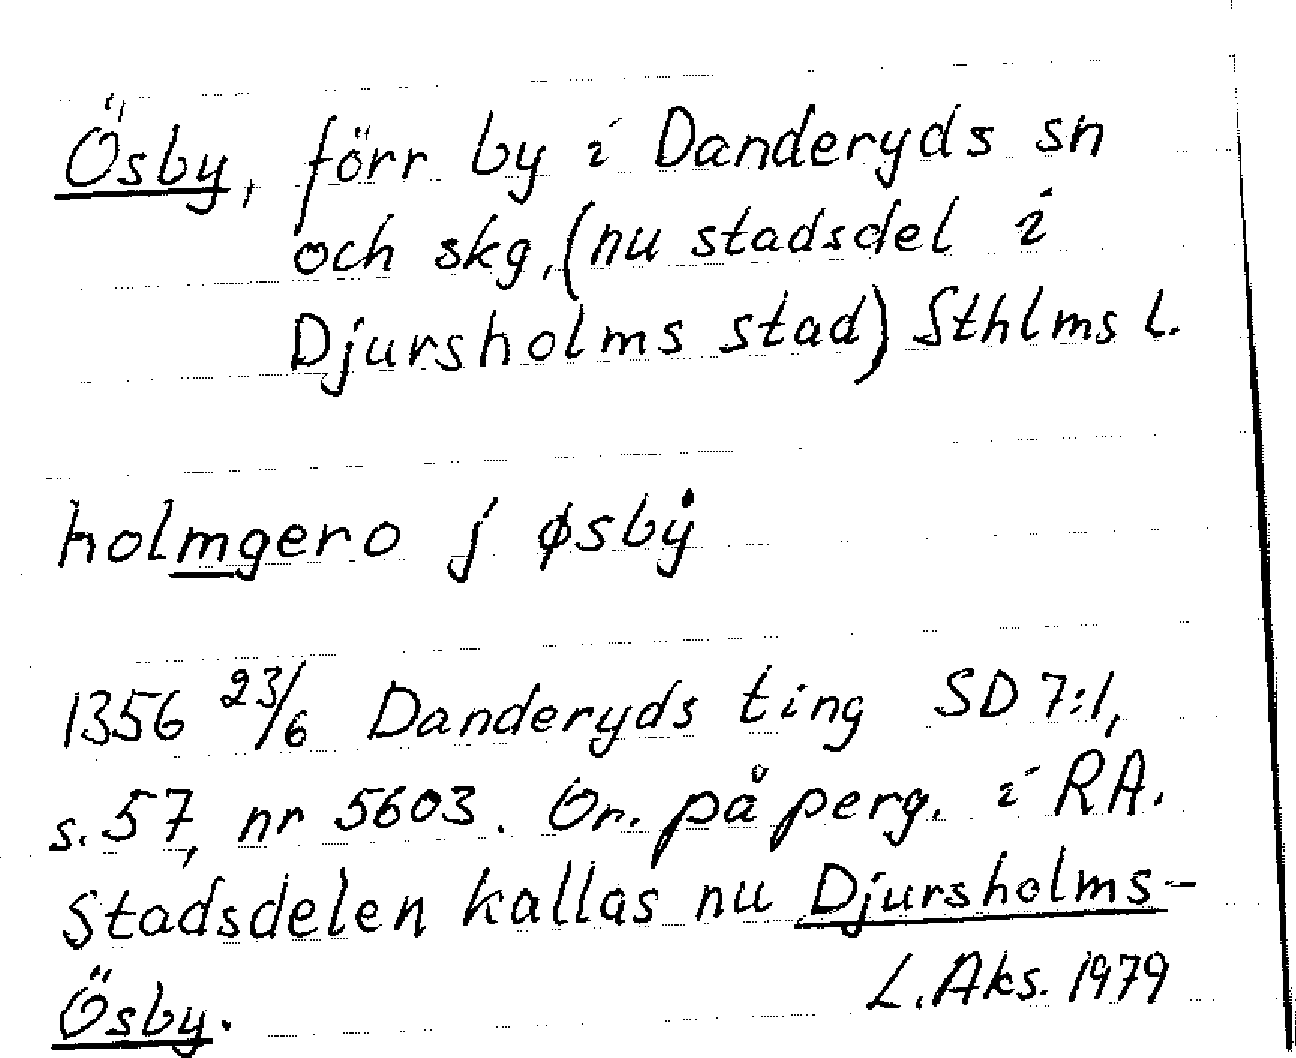 Ösby, förr by i Danderyds sn
och skg, (nu stadsdel i
Djursholms stad) Sthlms l.
holmgero j øsbẏ
1356 23/6 Danderyds ting SD 7:1,
s. 57, nr 5603. Or. på perg. i RA.
Stadsdelen kallas nu Djursholms-
Ösby.
L. Aks. 1979